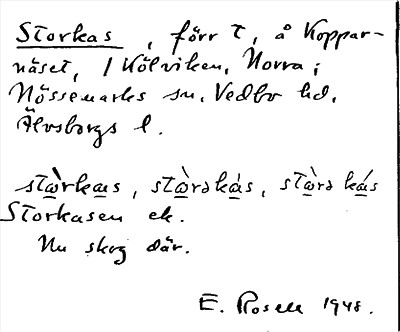 Storkas, förr t, å Koppar-
näset, / Kölviken, Norra;
Nössemarks sn. Vedbo hd.
Älvsborgs l.
Storkasen ek.
Nu skog där.
E. Rosell 1948.